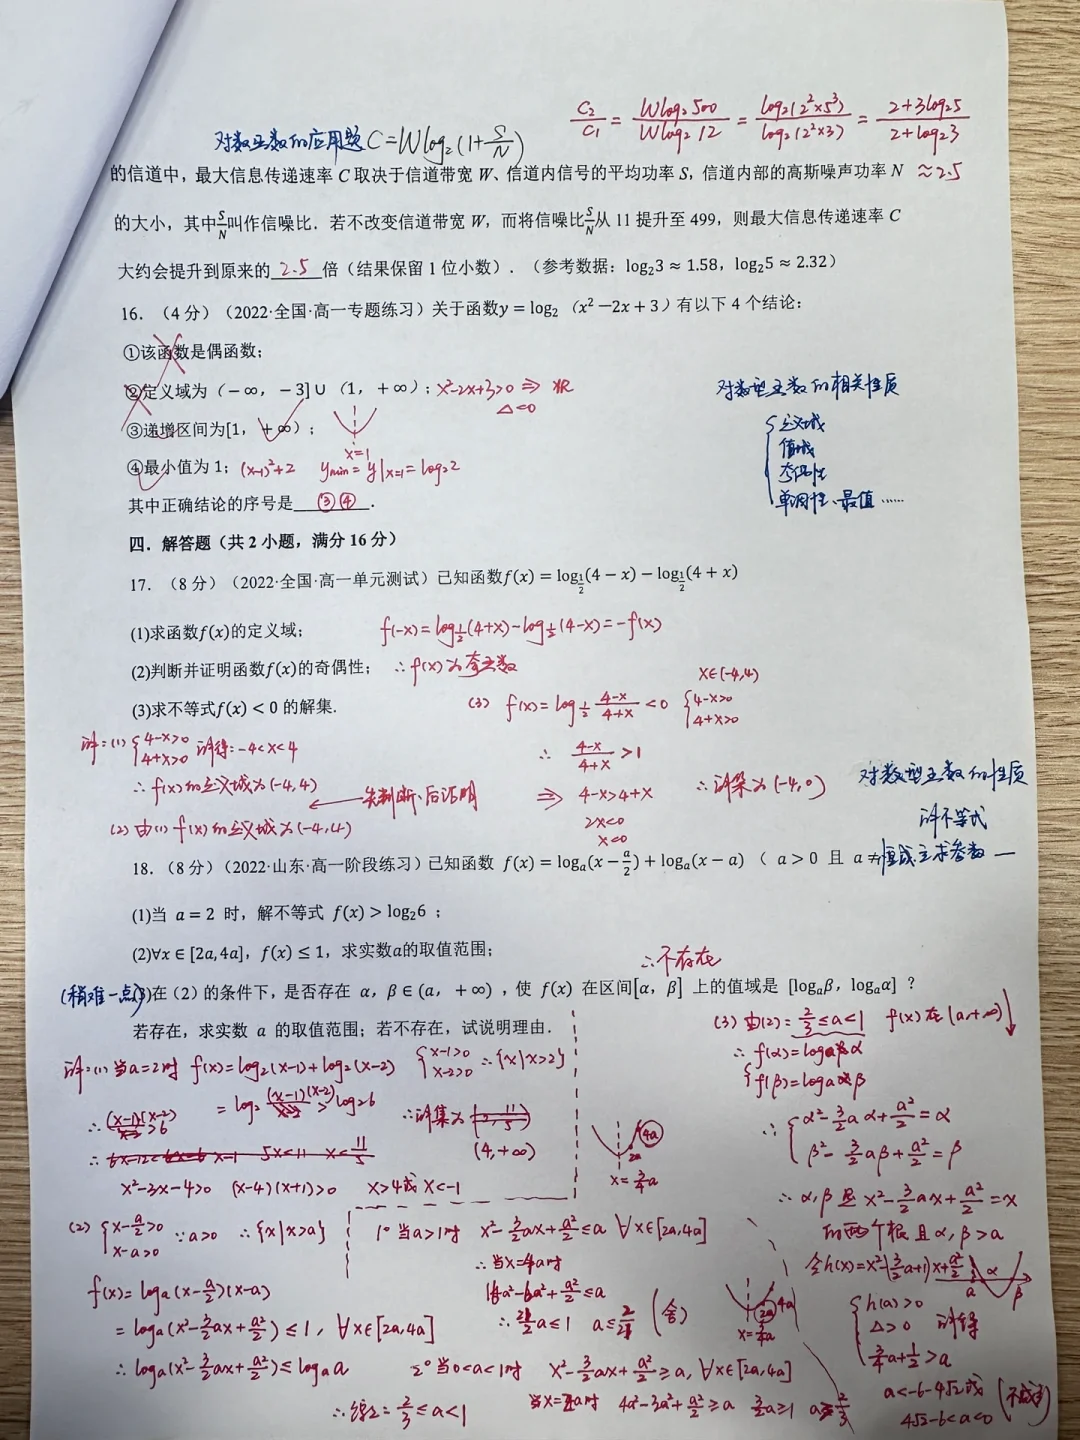 C₂/C₁ = Wlog₂500/Wlog₂12 = log₂(2²×5³)/log₂(2²×3) = 2+3log₂5/2+log₂3
≈2.5
对数函数的应用题 C=Wlog₂(1+S/N)
的信道中，最大信息传递速率 C 取决于信道带宽 W、信道内信号的平均功率 S，信道内部的高斯噪声功率 N
的大小，其中S/N叫作信噪比．若不改变信道带宽 W，而将信噪比S/N从 11 提升至 499，则最大信息传递速率 C
大约会提升到原来的 2.5 倍（结果保留 1 位小数）．（参考数据：log₂3 ≈ 1.58，log₂5 ≈ 2.32）
16．（4 分）（2022·全国·高一专题练习）关于函数y = log₂（x² −2x + 3）有以下 4 个结论：
①该函数是偶函数；
②定义域为（−∞，−3]∪（1，+∞）；x²-2x+3>0 ⇒ x∈R
△<0
③递增区间为[1，+∞）；
x=1
④最小值为 1；(x-1)²+2 ymin = y|x=1 = log₂2
其中正确结论的序号是 ③④ ．
对数型函数的相关性质
定义域
值域
奇偶性
单调性、最值……
四．解答题（共 2 小题，满分 16 分）
17．（8 分）（2022·全国·高一单元测试）已知函数f(x) = log½(4 − x) − log½(4 + x)
(1)求函数f(x)的定义域；
f(-x)=log½(4+x)-log½(4-x)=-f(x)
(2)判断并证明函数f(x)的奇偶性；
∴f(x)为奇函数
(3)求不等式f(x) < 0 的解集.
(3) f(x)=log½ 4-x/4+x <0
x∈(-4,4)
{4-x>0
4+x>0
∴ 4-x/4+x >1
⇒ 4-x>4+x
2x<0
x<0
∴解集为(-4,0)
解：(1) {4-x>0
4+x>0 解得：-4<x<4
∴f(x)的定义域为(-4,4)
先判断、后证明
(2) 由(1) f(x)的定义域为(-4,4)
对数型函数的性质
解不等式
恒成立求参数
18．（8 分）（2022·山东·高一阶段练习）已知函数 f(x) = logₐ(x − a/2) + logₐ(x − a)（ a > 0 且 a ≠
(1)当 a = 2 时，解不等式 f(x) > log₂6；
(2)∀x ∈ [2a, 4a]，f(x) ≤ 1，求实数a的取值范围；
∴不存在
(稍难一点)
(3)在（2）的条件下，是否存在 α，β ∈ (a，+∞)，使 f(x) 在区间[α，β] 上的值域是 [logₐβ，logₐα]？
若存在，求实数 a 的取值范围；若不存在，试说明理由．
解：(1) 当a=2时 f(x)=log₂(x-1)+log₂(x-2) {x-1>0
x-2>0 ∴{x|x>2}
= log₂(x-1)(x-2) > log₂6
∴(x-1)(x-2)>6
∴解集为
(4,+∞)
x²-3x-4>0 (x-4)(x+1)>0 x>4或x<-1
4a
2a
x=¾a
(2) {x-a/2>0
x-a>0 ∵a>0 ∴{x|x>a}
f(x)=logₐ(x-a/2)(x-a)
=logₐ(x²-3/2ax+a²/2)≤1，∀x∈[2a,4a]
∴logₐ(x²-3/2ax+a²/2)≤logₐa
1° 当a>1时 x²-3/2ax+a²/2≤a ∀x∈[2a,4a]
∴当x=4a时
16a²-6a²+a²/2≤a
∴21/2a≤1 a≤2/21 (舍)
2° 当0<a<1时 x²-3/2ax+a²/2≥a，∀x∈[2a,4a]
当x=2a时 4a²-3a²+a²/2≥a 3/2a≥1 a≥2/3
2a 4a
x=¾a
∴综上：2/3≤a<1
(3) 由(2)：2/3≤a<1 f(x)在(a,+∞)↓
∴{f(α)=logₐα
f(β)=logₐβ
∴{α²-3/2aα+a²/2=α
β²-3/2aβ+a²/2=β
∴α,β是x²-3/2ax+a²/2=x
的两个根且α,β>a
令h(x)=x²-(3/2a+1)x+a²/2
a α β
{h(a)>0
△>0 解得
3/4a+1/2>a
a<-6-4√2或
4√2-6<a<0 (不成立)